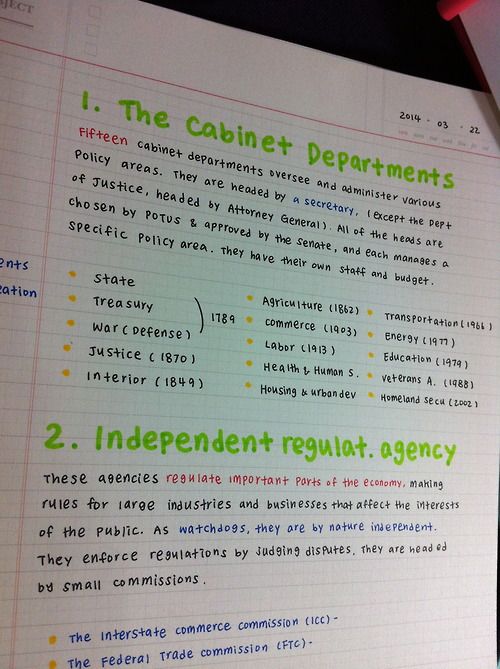 JECT
2014 . 03 . 22
1. The Cabinet Departments
Fifteen cabinet departments oversee and administer various
policy areas. They are headed by a secretary, (except the Dept
of Justice, headed by Attorney General). All of the heads are
chosen by POTUS & approved by the Senate, and each manages a
specific policy area. They have their own staff and budget.
ents
zation
State
Treasury
War (Defense)
1789
Justice (1870)
Interior (1849)
Agriculture (1862)
Commerce (1903)
Labor (1913)
Health & Human S.
Housing & urban dev
Transportation (1966)
Energy (1977)
Education (1979)
Veterans A. (1988)
Homeland Secu (2002)
2. Independent regulat. agency
These agencies regulate important parts of the economy, making
rules for large industries and businesses that affect the interests
of the public. As watchdogs, they are by nature independent.
They enforce regulations by judging disputes. They are headed
by small commissions.
The Interstate commerce commission (ICC) -
The Federal Trade commission (FTC) -